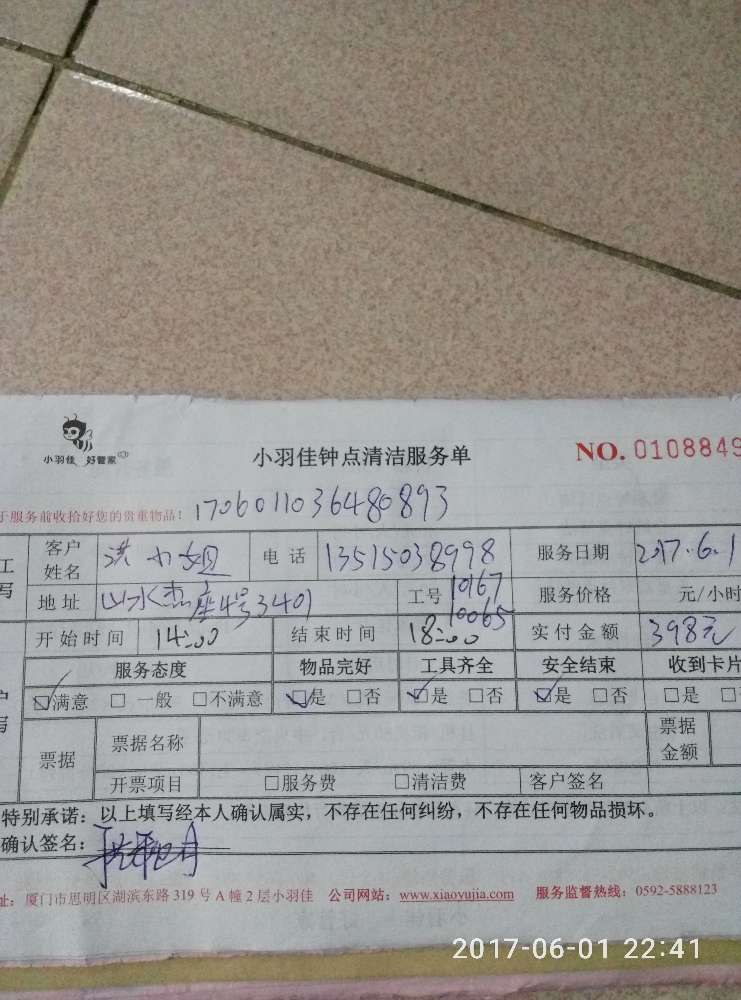 小羽佳 好管家
小羽佳钟点清洁服务单
NO. 0108849
于服务前收拾好您的贵重物品! 1706011036480893
工 客户姓名 洪小姐 电话 13515038998 服务日期 2017.6.1
写 地址 山水杰座4号3401 工号 10167 10065 服务价格 元/小时
开始时间 14:00 结束时间 18:00 实付金额 398元
服务态度 物品完好 工具齐全 安全结束 收到卡片
☑满意 □一般 □不满意 ☑是 □否 ☑是 □否 ☑是 □否 □是
写 票据 票据名称 票据金额
开票项目 □服务费 □清洁费 客户签名
特别承诺：以上填写经本人确认属实，不存在任何纠纷，不存在任何物品损坏。
确认签名：
址：厦门市思明区湖滨东路 319 号 A 幢 2 层小羽佳 公司网站：www.xiaoyujia.com 服务监督热线：0592-5888123
2017-06-01 22:41